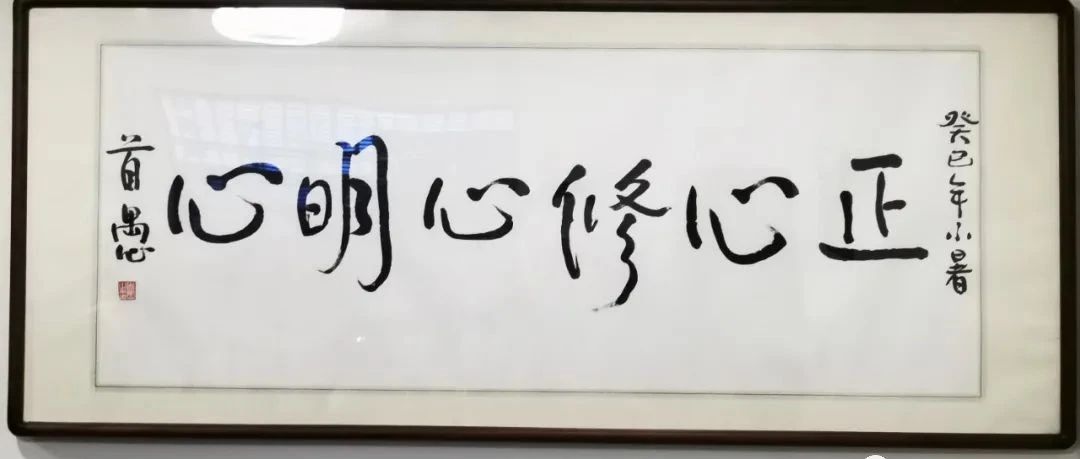 癸巳年小暑
正心修心明心
首愚